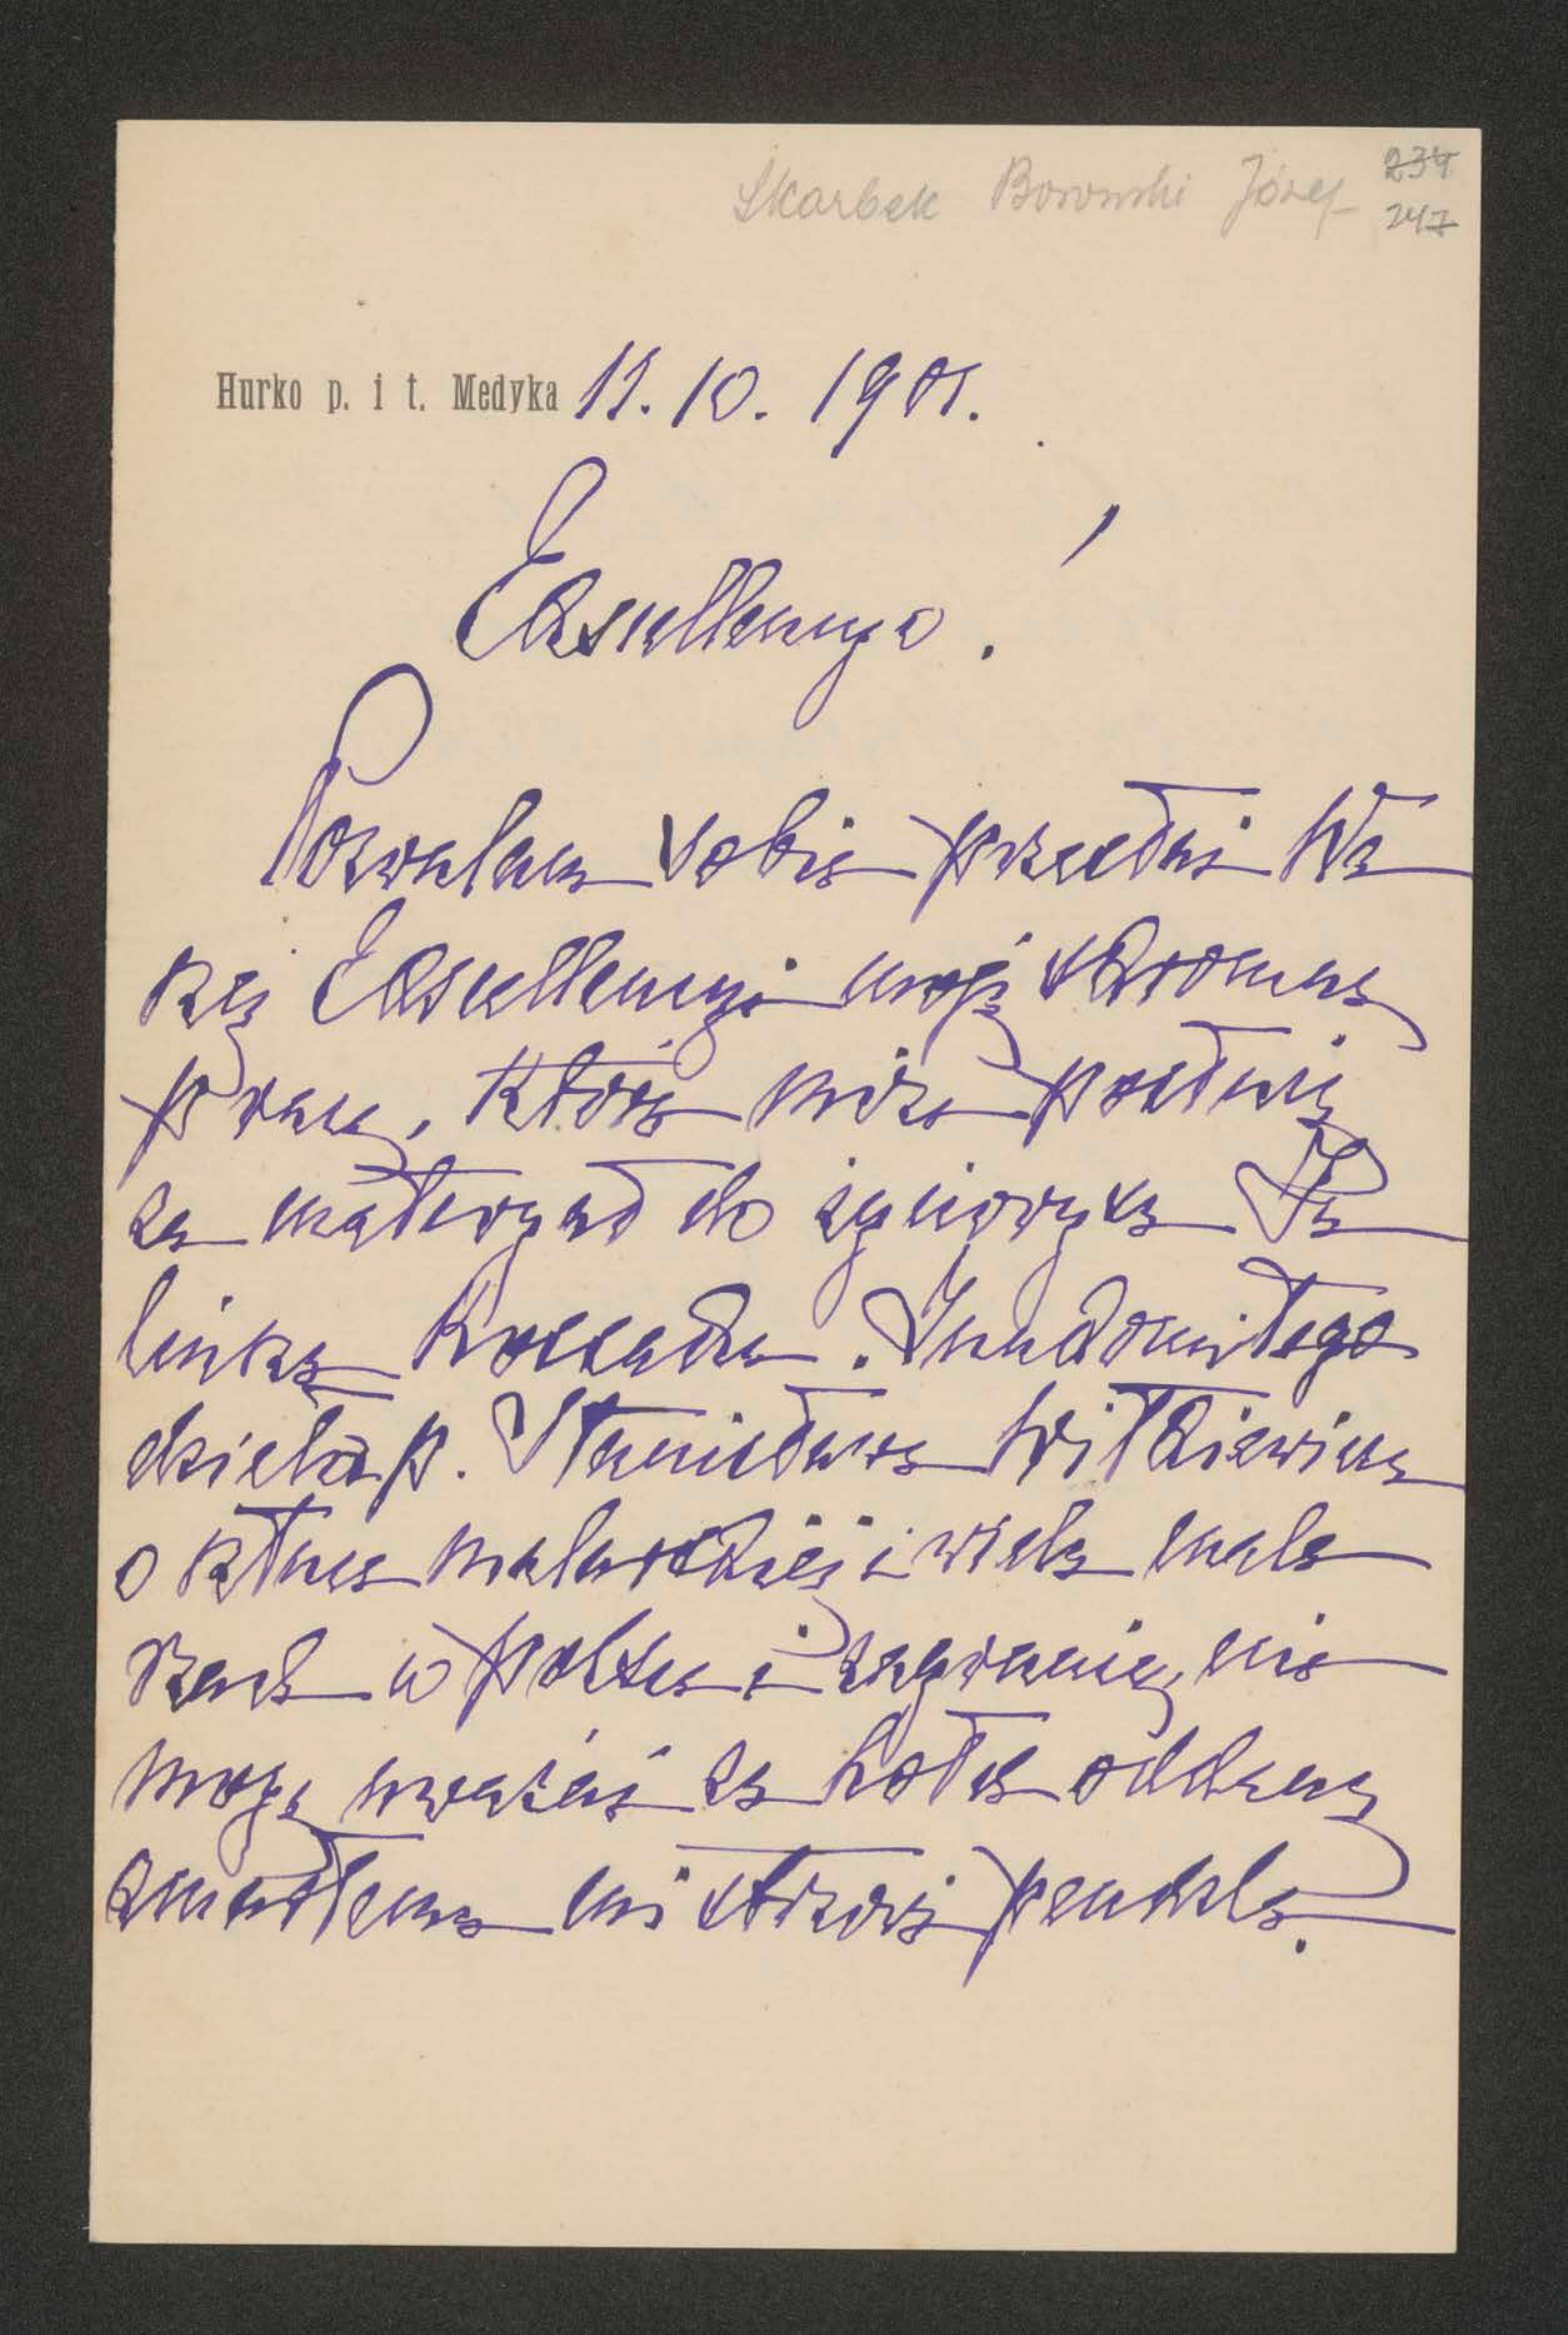 Skarbek Borowski Józef 234
247
Hurko p. i t. Medyka 11. 10. 1901.
Excellencyo!
Pozwalam sobie przesłać Wa
szej Excellencyi moją skromną
pracę, która może posłużyć
za materyał do życiorysu Ju
liusza Kossaka. Znakomitego
dzieła p. Stanisława Witkiewicza
o sztuce malarskiej i wielu mala
rzach w Polsce i zagranicą, nie
mogę uważać za hołd oddany
zmarłemu mistrzowi pendzla.